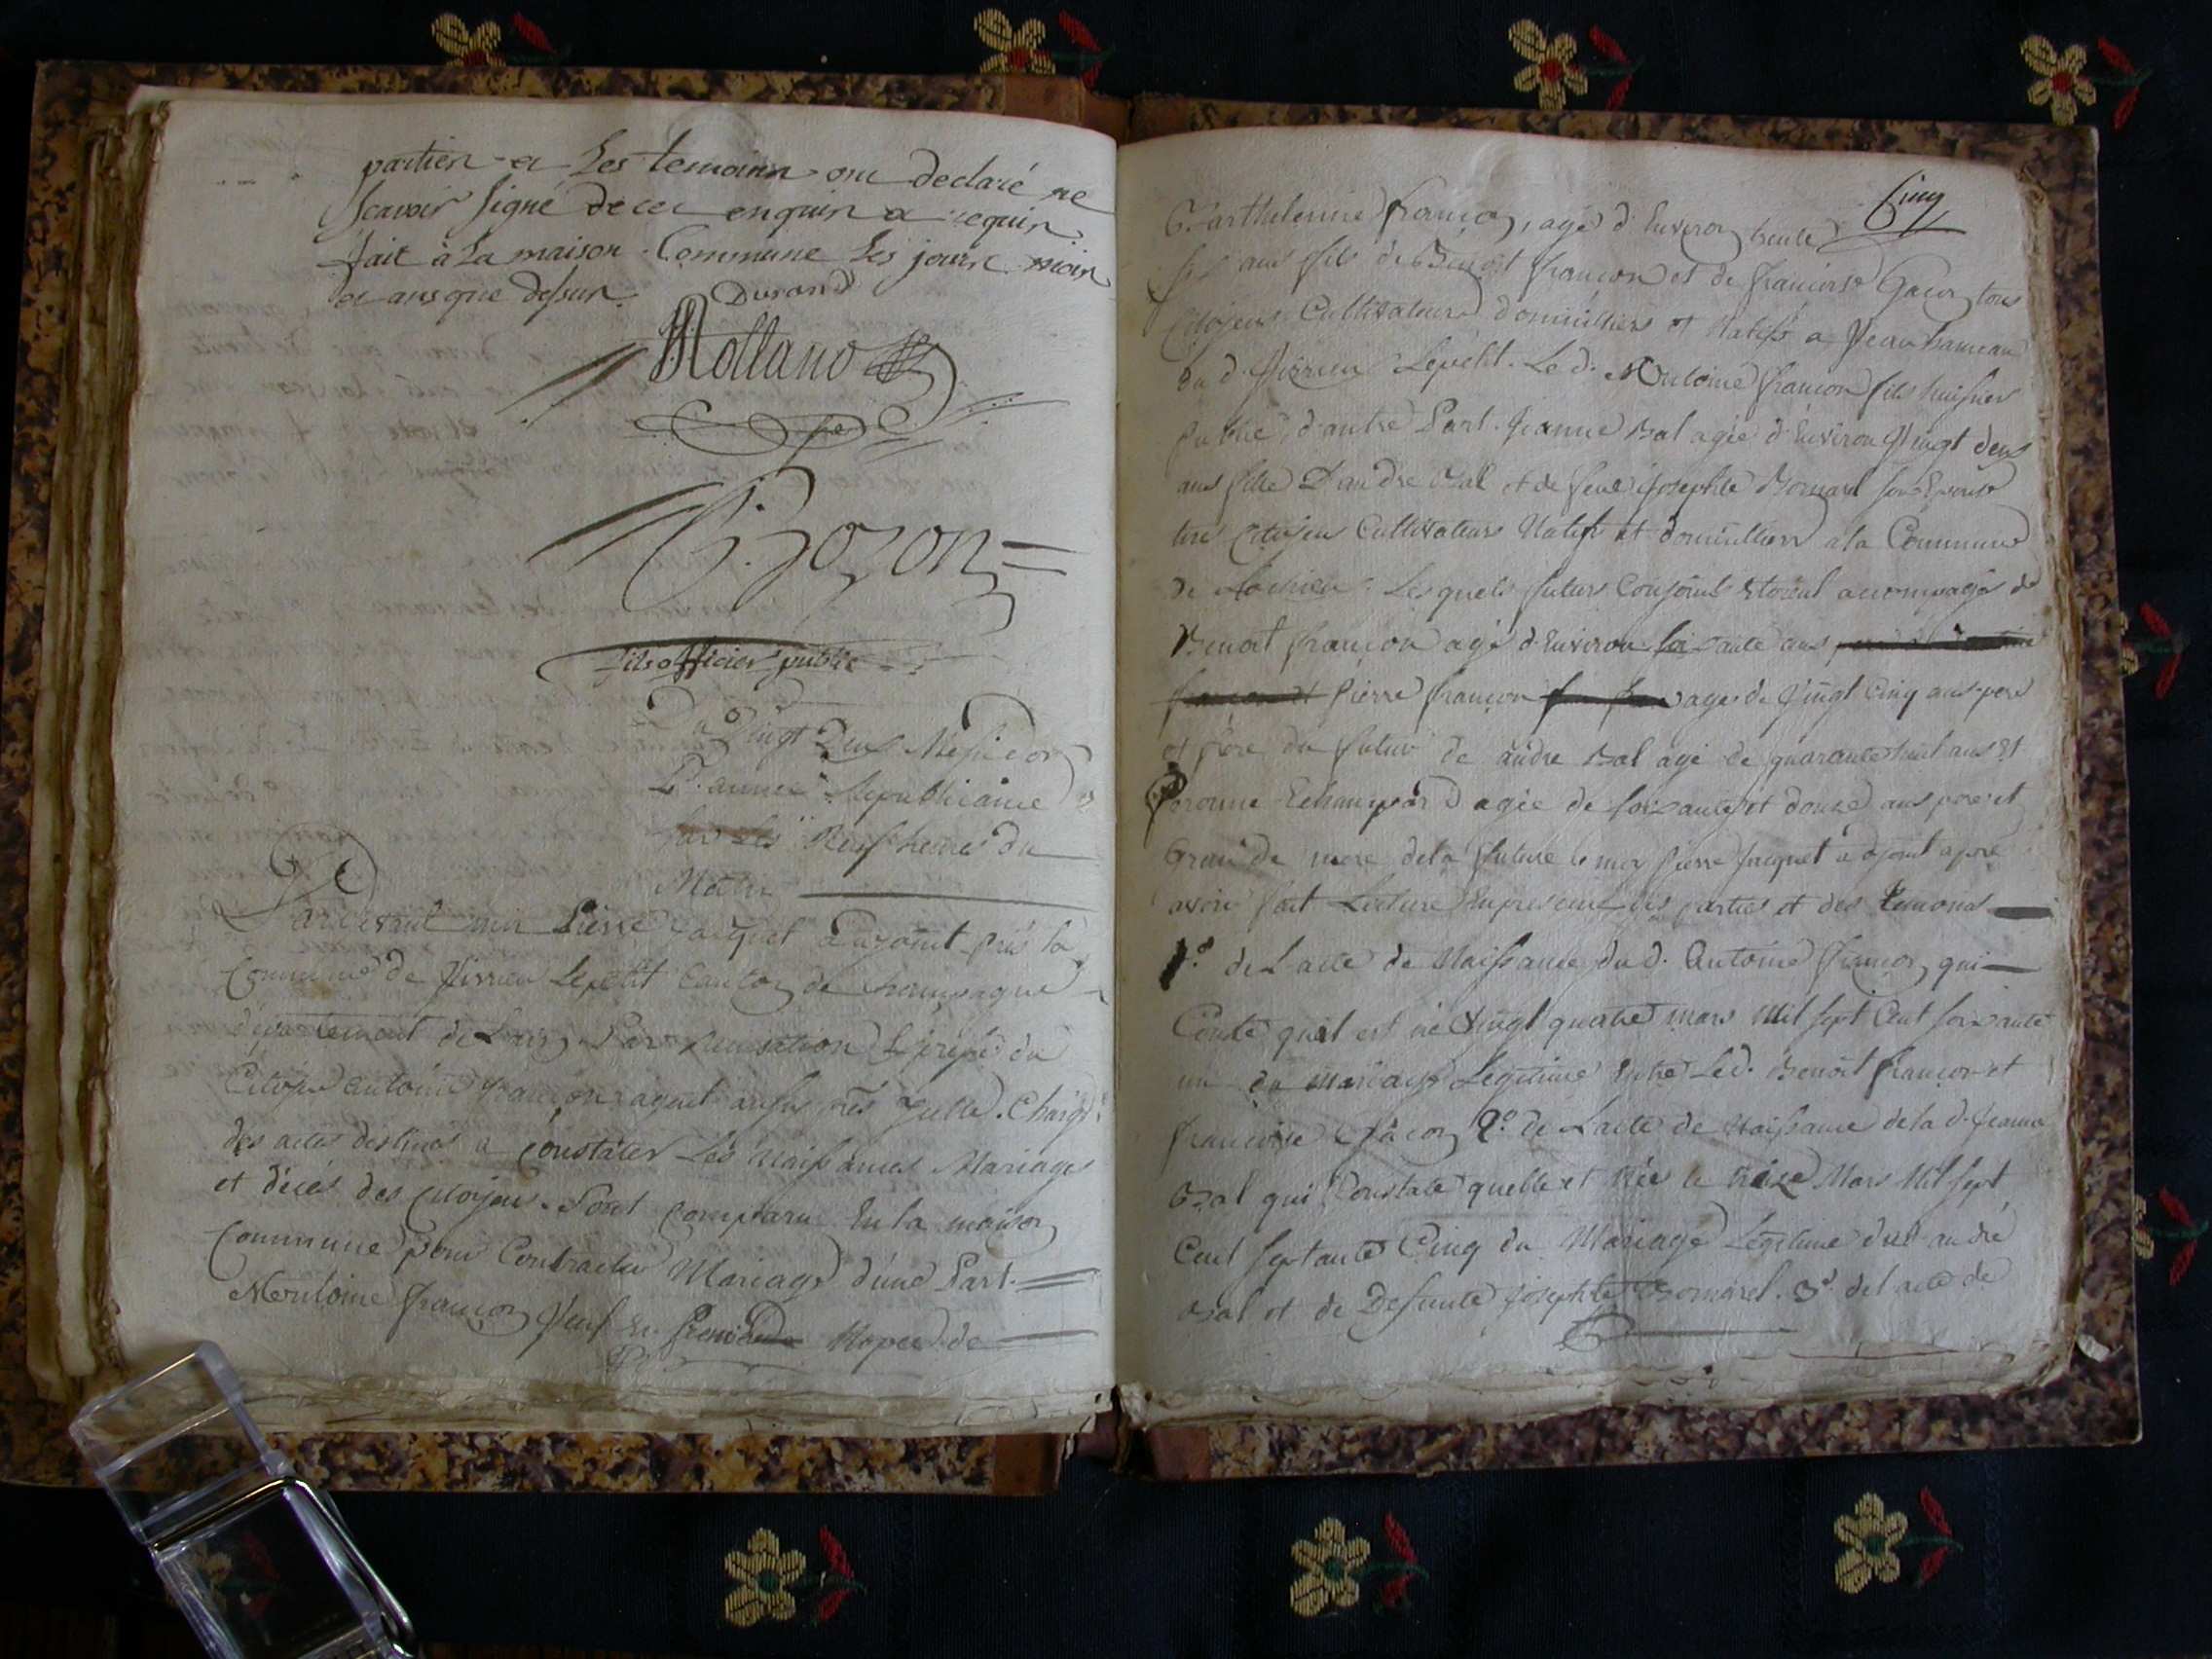 partien et Les temoinn ont declaré ne
scavoir signé de ce enquin et requin
fait à La maison Commune Les jourr moin
et ans que dessur.
Durand
Rolland
C. Bozon
fils officier public
Du Vingt Deux Messidor
L'année Républicaine
sur Les Neuf heures du
Matin
Pardevant moi Pierre Jacquet adjoint près la
Commune de Virieu Lepetit Canton de Champagne
département de Lain, Par
Citoyen antoine françon agent Charge
des actes destinés a Constater Les Naissances Mariages
et décés des Citoyens. Sont comparu En la maison
Commune pour Contracter Mariage d'une Part
antoine françon Veuf En Noces de
Cinq
Barthelemie françon, agé d'Environ trente
ans fils de Benoit françon et de francoise Gacon tous
Citoyens Cultivateurs domicilliers et Natifs a hameau
du d. Virrieu Lepetit. Le d. Antoine françon fils huissier
public, d'autre Part. Jeanne Bal agée d'Environ Vingt deux
ans fille D'andre Bal et de feue Josephte Bornard son Epouse
Citoyen Cultivateurs Natifs et domicilliers a la Commune
de Lochieu. Lesquels futurs Conjoints Etoient accompagés de
Benoit françon agé d'Environ soixante ans
Pierre françon agé de Vingt Cinq ans pere
et frere du futur de andre Bal agé de quarante huit ans Et
agée de soixante et douze ans pere et
Grande mere dela future le moy Pierre Jacquet adjoint apre
avoir fait Lecture En presence des parties et des temoins
1.º de L'acte de Naissance du d. Antoine françon qui
Conte quil est né Vingt quatre mars Mil sept Cent soixante
un du mariage Legitime Entre Led. Benoit françon et
francoise Gacon 2º. de L'acte de Naissance de la d. Jeanne
Bal qui Constate quelle et Née le treize Mars Mil sept
Cent septante Cinq du Mariage Légitime dud andré
Bal et de Defunte Josephte Bornard. 3º. del acte de